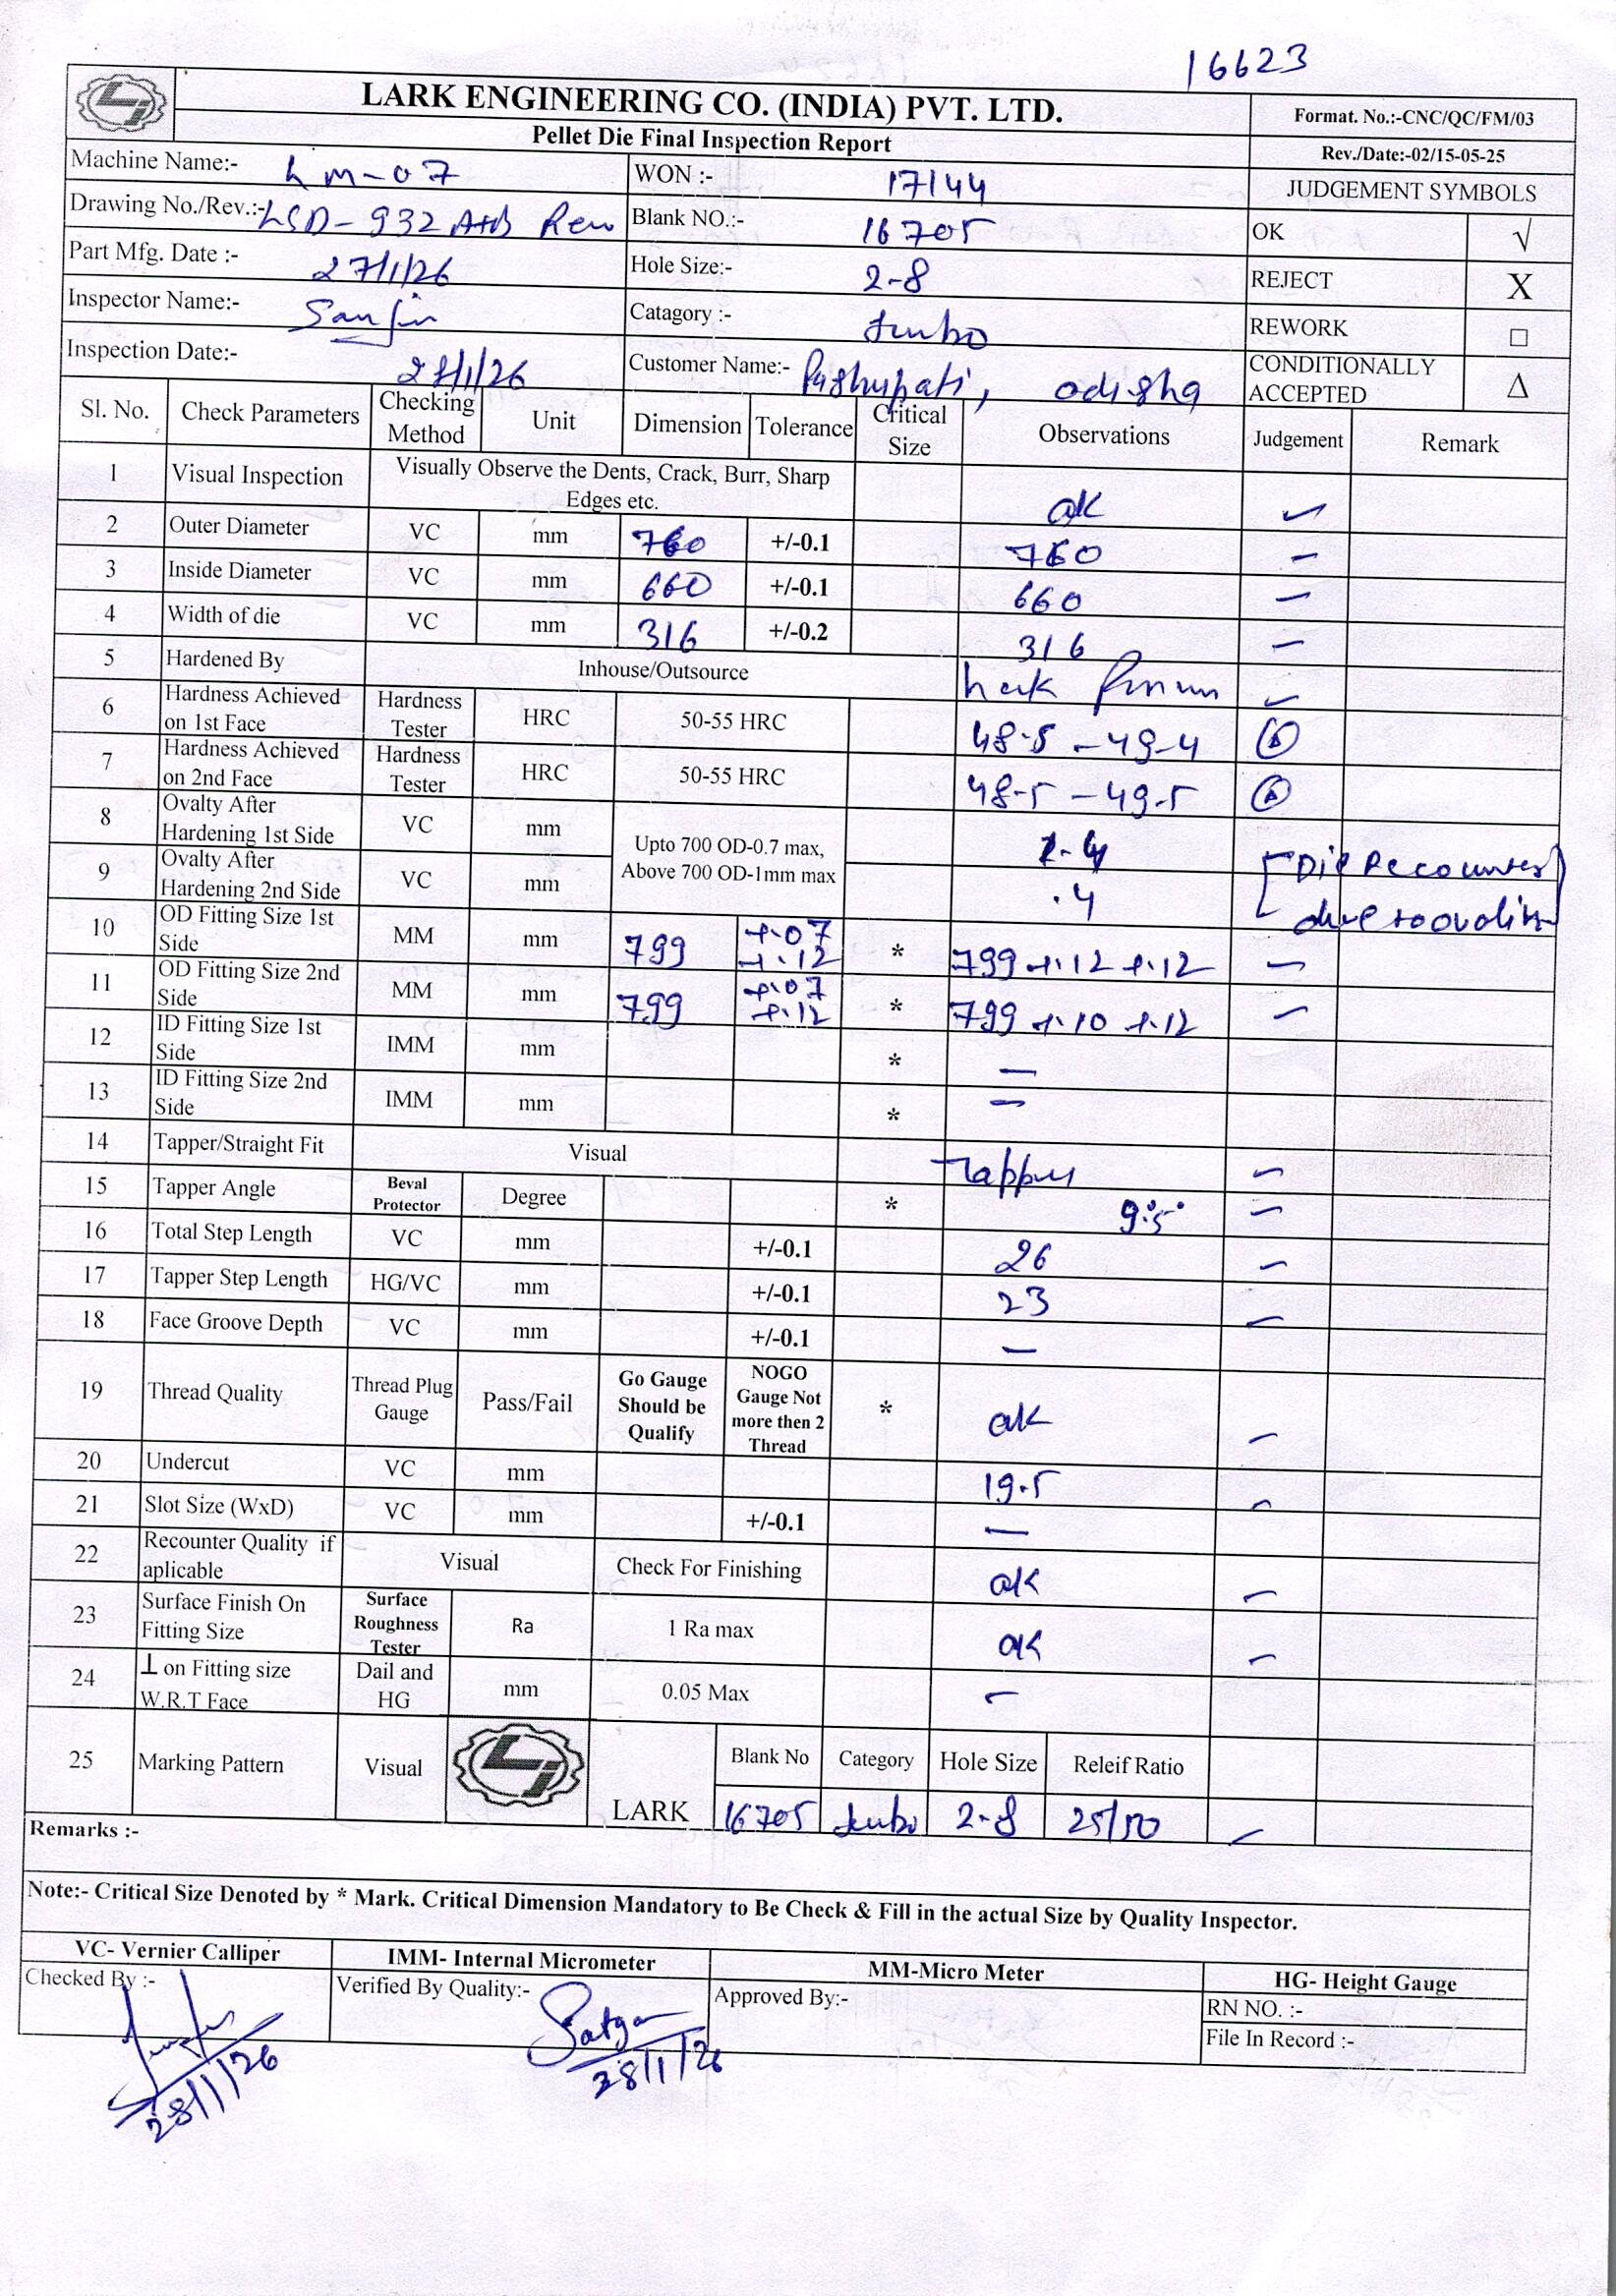 16623
LARK ENGINEERING CO. (INDIA) PVT. LTD.
Pellet Die Final Inspection Report
Format. No.:-CNC/QC/FM/03
Rev./Date:-02/15-05-25
Machine Name:- LM-07
WON :- 17144
JUDGEMENT SYMBOLS
Drawing No./Rev.:- LSD-932 A+B Rev
Blank NO.:- 16705
OK √
Part Mfg. Date :- 27/1/26
Hole Size:- 2-8
REJECT X
Inspector Name:-
Catagory :- Jumbo
REWORK □
Inspection Date:- 28/1/26
Customer Name:- Pashupati, odisha
CONDITIONALLY ACCEPTED Δ
Sl. No. Check Parameters Checking Method Unit Dimension Tolerance Critical Size Observations Judgement Remark
1 Visual Inspection Visually Observe the Dents, Crack, Burr, Sharp Edges etc. ok
2 Outer Diameter VC mm 760 +/-0.1 760
3 Inside Diameter VC mm 660 +/-0.1 660
4 Width of die VC mm 316 +/-0.2 316
5 Hardened By Inhouse/Outsource
6 Hardness Achieved on 1st Face Hardness Tester HRC 50-55 HRC 48-5 - 49-4
7 Hardness Achieved on 2nd Face Hardness Tester HRC 50-55 HRC 48-5 - 49-5
8 Ovalty After Hardening 1st Side VC mm Upto 700 OD-0.7 max, Above 700 OD-1mm max
9 Ovalty After Hardening 2nd Side VC mm .4
Die Recounter
due to ovality
10 OD Fitting Size 1st Side MM mm 799 +.07 +.12 * 799 +.12 +.12
11 OD Fitting Size 2nd Side MM mm 799 +.07 +.12 * 799 +.10 +.12
12 ID Fitting Size 1st Side IMM mm * —
13 ID Fitting Size 2nd Side IMM mm * —
14 Tapper/Straight Fit Visual Tapper
15 Tapper Angle Beval Protector Degree * 9.5°
16 Total Step Length VC mm +/-0.1 26
17 Tapper Step Length HG/VC mm +/-0.1 23
18 Face Groove Depth VC mm +/-0.1 —
19 Thread Quality Thread Plug Gauge Pass/Fail Go Gauge Should be Qualify NOGO Gauge Not more then 2 Thread * ok
20 Undercut VC mm 19.5
21 Slot Size (WxD) VC mm +/-0.1 —
22 Recounter Quality if aplicable Visual Check For Finishing ok
23 Surface Finish On Fitting Size Surface Roughness Tester Ra 1 Ra max ok
24 ⊥ on Fitting size W.R.T Face Dail and HG mm 0.05 Max —
25 Marking Pattern Visual LARK Blank No Category Hole Size Releif Ratio
16705 Jumbo 2-8 25/50
Remarks :-
Note:- Critical Size Denoted by * Mark. Critical Dimension Mandatory to Be Check & Fill in the actual Size by Quality Inspector.
VC- Vernier Calliper IMM- Internal Micrometer MM-Micro Meter HG- Height Gauge
Checked By :- Verified By Quality:- Approved By:- RN NO. :-
File In Record :-
28/1/26
28/1/26